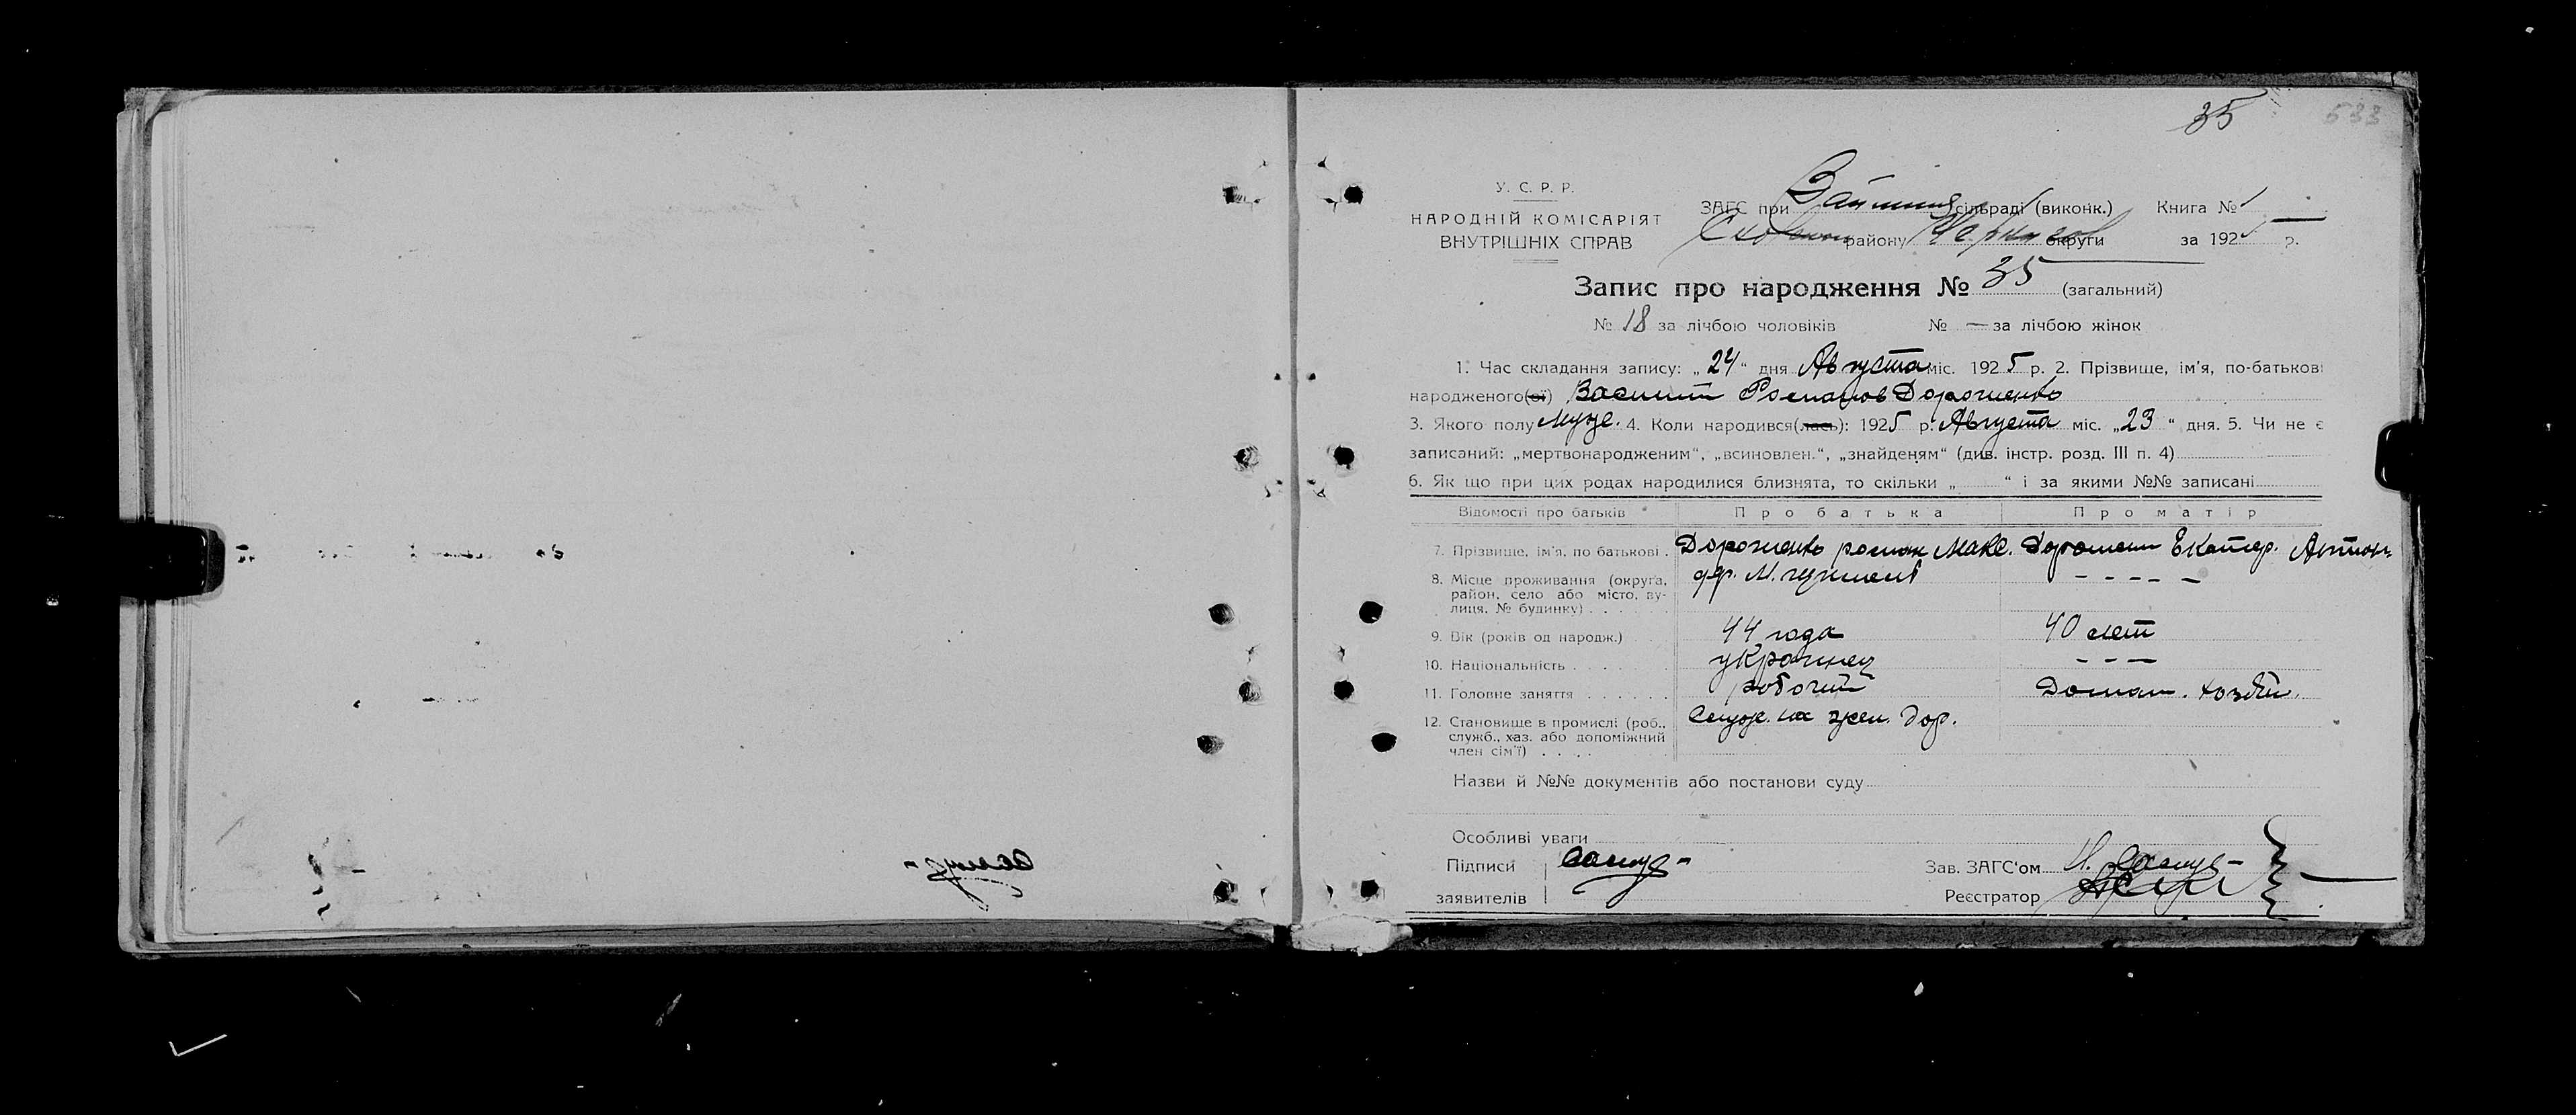 35
533
У. С. Р. Р.
НАРОДНІЙ КОМІСАРІЯТ
ВНУТРІШНІХ СПРАВ
ЗАГС при сільраді (виконк.) Книга № 1
району округи за 1925 р.
Запис про народження № 35 (загальний)
№ 18 за лічбою чоловіків № — за лічбою жінок
1. Час складання запису: „ 24 “ дня Августа міс. 1925 р. 2. Прізвище, ім'я, по-батькові
народженого(ої) Василий Романов Дорошенко
3. Якого полу Муже. 4. Коли народився(лась): 1925 р. Августа міс. „ 23 “ дня. 5. Чи не є
записаний: „мертвонародженим“, „всиновлен.“, „знайденям“ (див. інстр. розд. III п. 4)
6. Як що при цих родах народилися близнята, то скільки „ “ і за якими №№ записані
Відомости про батьків Про батька Про матір
7. Прізвище, ім'я, по батькові . Дорошенко роман Макс. Дорошенко Екатер. Антон.
8. Місце проживання (округа, - - - - -
район, село або місто, ву-
лиця, № будинку) . . . .
9. Вік (років од народж.) . . 44 года 40 лет
10. Національність . . . . . . украинец - - -
11. Головне заняття . . . . . . рабочий Домаш. хозяй.
12. Становище в промислі (роб., Служ. на жел. дор.
служб., хаз. або допоміжний
член сім'ї) . . . .
Назви й №№ документів або постанови суду
Особливі уваги
Підписи Зав. ЗАГС'ом
заявителів Реєстратор